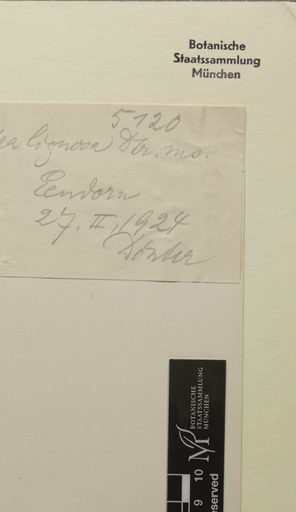 Botanische
Staatssammlung
München
5120
ea lignosa Dtr. ms.
Eendorn
27. II. 1924
Dinter
BOTANISCHE
STAATSSAMMLUNG
MÜNCHEN
9 10
served